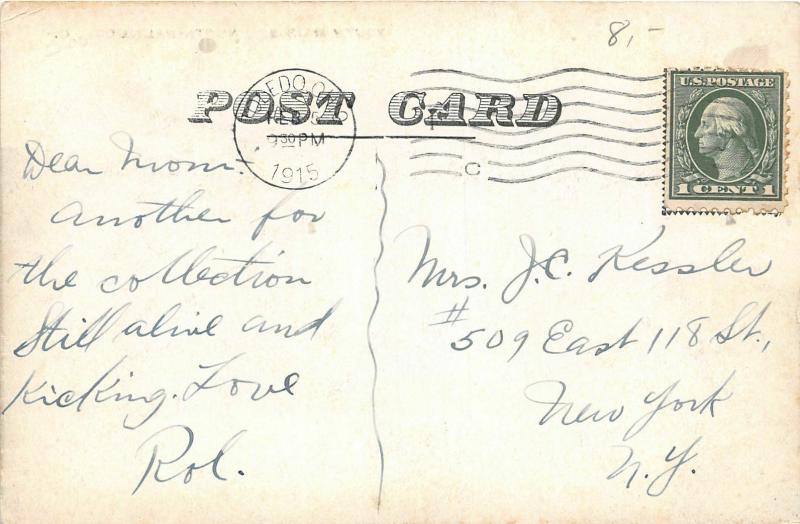 8,-
POST CARD
TOLEDO, O.
9 30 PM
1915
U.S. POSTAGE
1 CENT 1
C
Dear Mom:
Another for
the collection
Still alive and
Kicking. Love
Rol.
Mrs. J.C. Kessler
# 509 East 118 St.,
New York
N.Y.